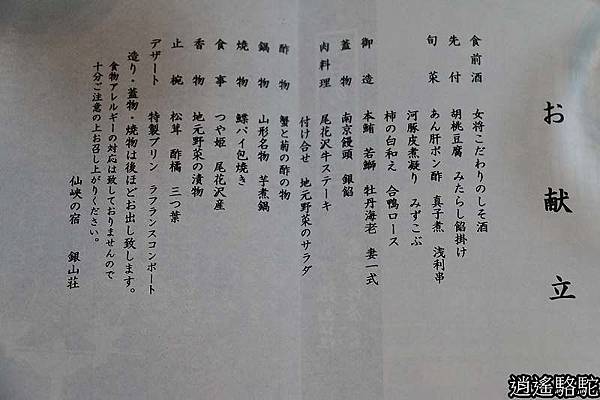 お献立
食前酒　女将こだわりのしそ酒
先付　胡桃豆腐　みたらし餡掛け
旬菜　あん肝ポン酢　真子煮　浅利串
河豚皮煮凝り　みずこぶ
柿の白和え　合鴨ロース
御造　本鮪　若鰤　牡丹海老　妻一式
蓋物　南京饅頭　銀餡
肉料理　尾花沢牛ステーキ
付け合せ　地元野菜のサラダ
酢物　蟹と菊の酢の物
鍋物　山形名物　芋煮鍋
焼物　鰈パイ包焼き
食事　つや姫　尾花沢産
香物　地元野菜の漬物
止椀　松茸　酢橘　三つ葉
デザート　特製プリン　ラフランスコンポート
造り・蓋物・焼物は後ほどお出し致します。
食物アレルギーの対応は致しておりませんので
十分ご注意の上お召し上がりください。
仙峡の宿　銀山荘
逍遙駱駝